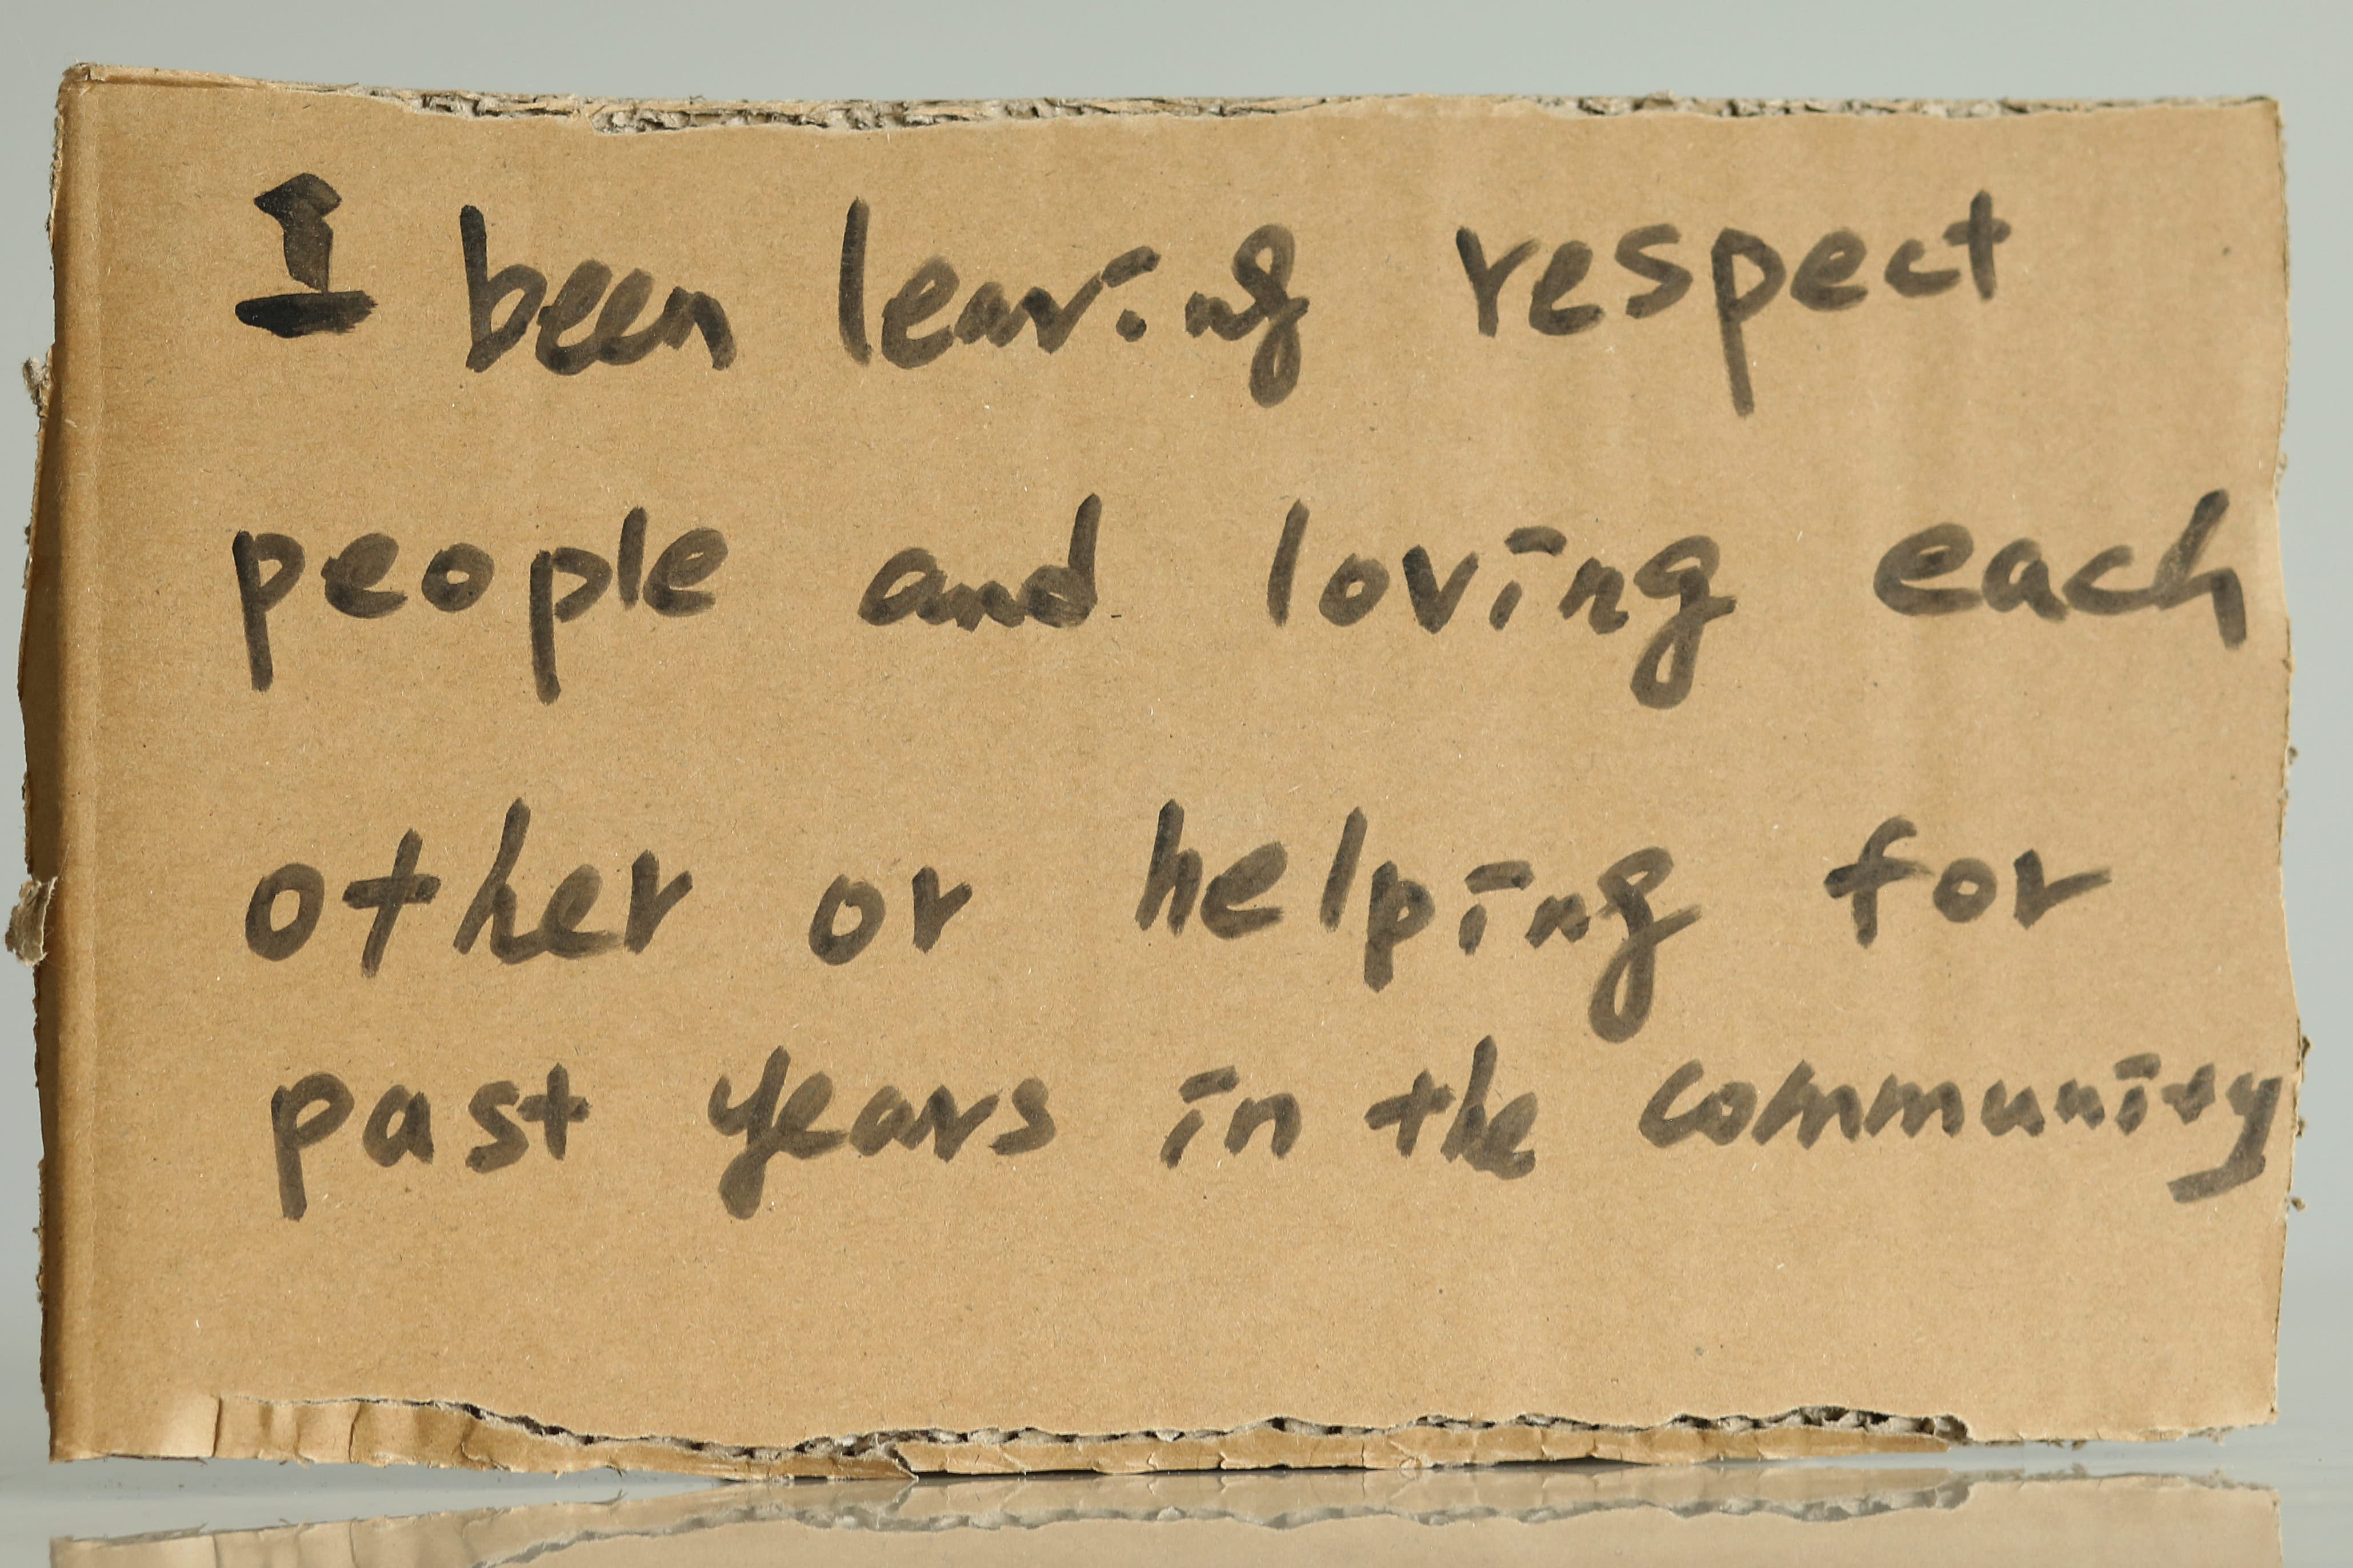 I been learing respect
people and loving each
other or helping for
past years in the community